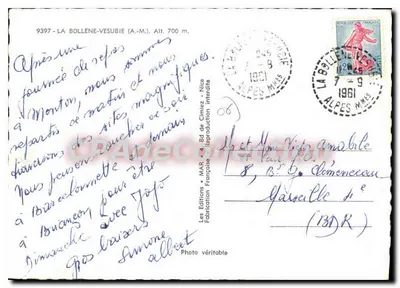 9397 - LA BOLLENE-VESUBIE (A.-M.). Alt. 700 m.
Après une
journée de repos
à Menton, nous sommes
repartis ce matin et nous
franchissons des sites magnifiques.
Nous pensons coucher ce soir
à Barcelonnette et demain
à Briançon pour être
Dimanche avec Jojo
Gros baisers
Simone
Albert
Les Editions "MAR" Bd de Cimiez Nice
Fabrication Française - Reproduction interdite
Photo véritable
7 - 9
1961
ALPES MMES
LA BOLLENE-VESUBIE
7 - 9
1961
ALPES MMES
(06)
Mr et Mme
8, Bd Clémenceau
Marseille 4e
(BDR)